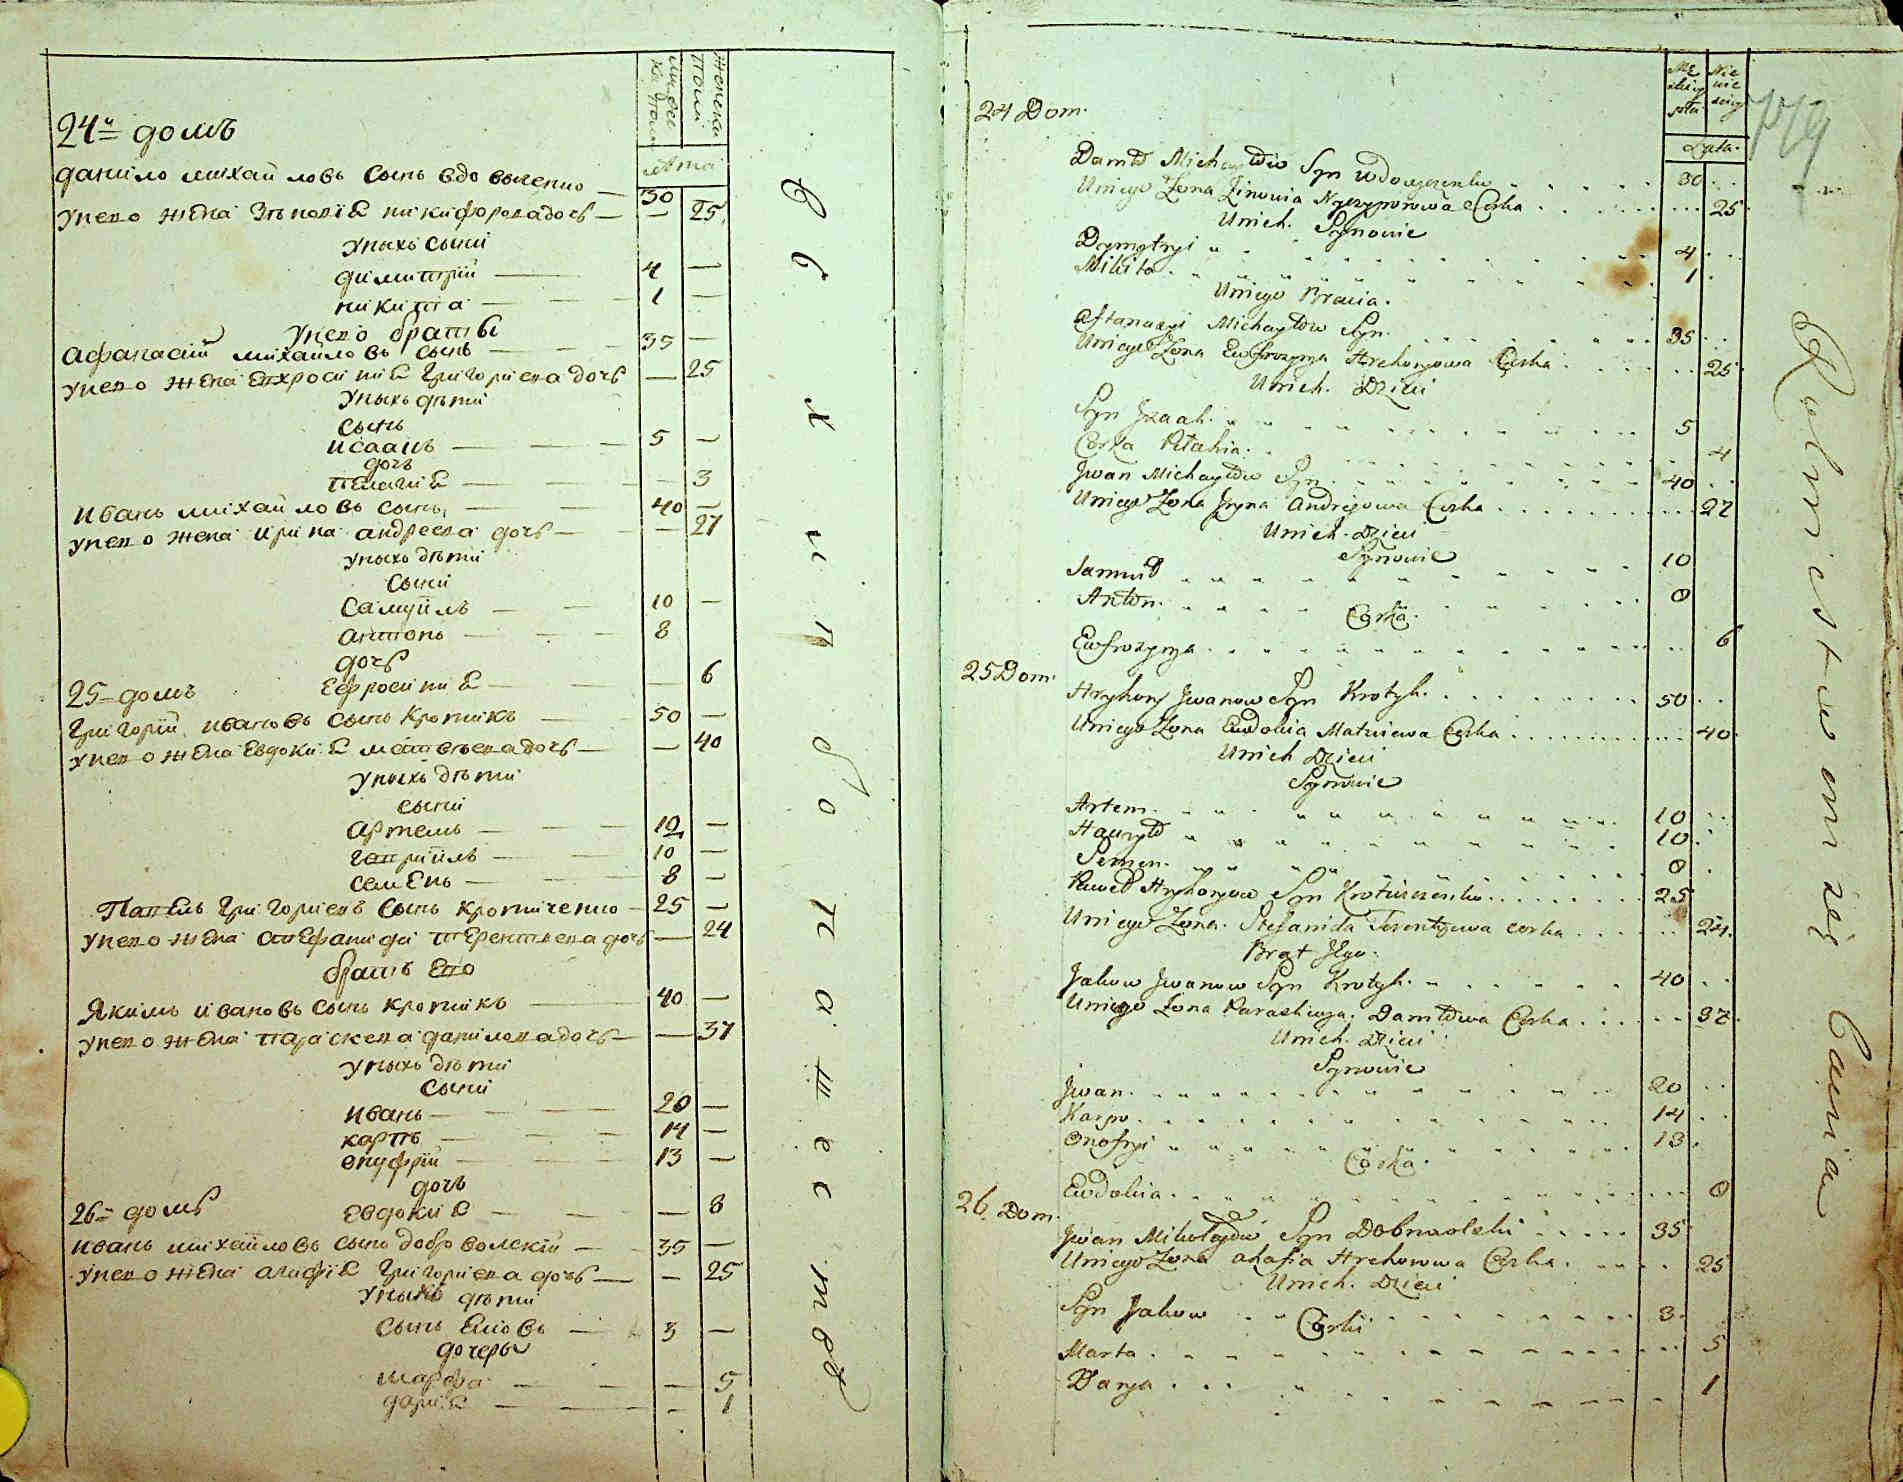 Мужеска полу
Женска полу
Лѣта
24й домъ
данило михайловъ сынъ вдовыченко — 30
унего жена зѣновія никифорова дочь — — 25
унихъ сыни
димитрій — 4 —
никита — 1 —
унего браты
афанасій михайловъ сынъ — 35 —
унего жена евхросинія григориева дочь — 25
унихъ дѣти
сынъ
исаакъ — 5 —
дочь
пелагія — — 3
иванъ михайловъ сынъ — 40 —
унего жена ирина андреева дочь — — 27
унихъ дѣти
сыни
самуйлъ — 10 —
антонъ — 8
дочь
ефросинія — — 6
25 домъ
григорій ивановъ сынъ кротикъ — 50 —
унего жена евдокия матвѣева дочь — — 40
унихъ дѣти
сыни
артемъ — 12 —
гавриилъ — 10 —
семенъ — 8 —
Павелъ григориевъ сынъ кротиченко — 25 —
унего жена стефанида терентиева дочь — 24
братъ его
Якимъ ивановъ сынъ кротикъ — 40 —
унего жена параскева данилова дочь — — 37
унихъ дѣти
сыни
иванъ — 20 —
карпъ — 14 —
онуфрій — 13 —
дочь
евдокия — — 8
26 домъ
иванъ михайловъ сынъ доброволскій — 35 —
унего жена агафия григориева дочь — — 25
унихъ дѣти
сынъ яковъ — 3 —
дочеры
марфа — — 5
дария — — 1
24 Dom.
Męzkiey płci
Lata.
779
Daniło Michayłow Syn Wdowyczenko 30
Uniego Zona Zinowia Nyczyporowa Corka 25
Unich. Synowie
Dymytryi 4
Mikita 1
Uniego Bracia.
Aftanazyi Michayłow Syn. 35
Uniego Zona Ewfrozyna Hrehorowa Corka 25
Unich. Dzieci
Syn Jzaak. 5
Corka Pełahia. 4
Jwan Michayłow Syn 40
Uniego Zona Jryna Andrejowa Corka 27
Unich. Dzieci
Synowie
Samuił 10
Anton. 8
Corka.
Ewfrozyna 6
25 Dom.
Hryhory Jwanow Syn Krotyk. 50
Uniego Zona Ewdokia Matwiewa Corka 40
Unich Dzieci
Synowie
Artem. 10
Hawryło 10
Semen. 8
Paweł Hryhoryow Syn Krotiuczenko 25
Uniego Zona. Stefanida Terentyewa corka 24.
Brat Jego.
Jakow Jwanow Syn Krotyk. 40
Uniego Zona Paraskiwya. Daniłowa Corka 37.
Unich. Dzieci
Synowie
Jwan. 20
Karpo 14
Onofryi 13.
Corka.
Ewdokia. 8
26 Dom.
Jwan Mikołajow Syn Dobrwolski 35
Uniego Zona ahafia Hrehorowa Corka. 25
Unich. Dzieci
Syn Jakow 3.
Corki
Marta 5
Darya 1